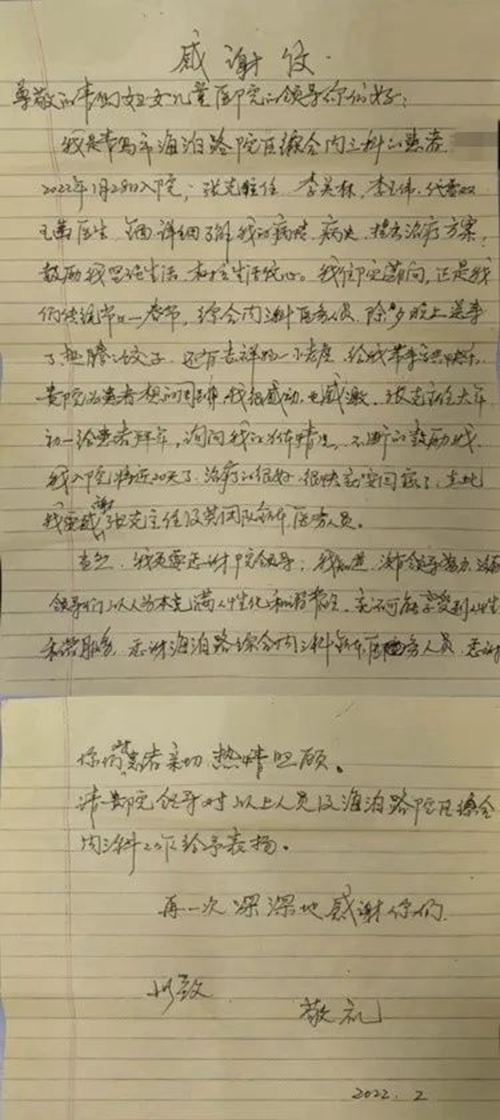 感谢信
尊敬的青岛妇女儿童医院的领导你们好:
我是青岛市海泊路院区综合内三科的患者
2022年1月28日入院, 张克主任 李英林, 李玉伟, 代
医生 全面 详细了解我的病情 病史 提出治疗方案,
鼓励我 生活 和 生活信心。我住院期间, 还是我
们传统节日—春节, 综合内三科医务人员 除夕晚上送来
了热腾腾饺子 还有吉祥的小老虎 给我带来 快乐
贵院为患者想的周到 我很感动, 也感激 张克主任大年
初一给患者拜年, 询问我的身体情况 不断的鼓励我
我入院将近20天了 治疗的很好 很快就要回家了, 在此
我要感谢张克主任及其团队全体医务人员。
当然 我更要感谢院领导, 我知道 没有领导努力 没有
领导们以人为本充满人性化和谐 就不可能享受到人性
和谐服务 感谢海泊路综合内三科全体医务人员 感谢
你们对患者亲切 热情照顾。
请贵院领导对以上人员及海泊路院区综合
内三科工作给予表扬。
再一次深深地感谢你们
此致
敬礼
2022. 2